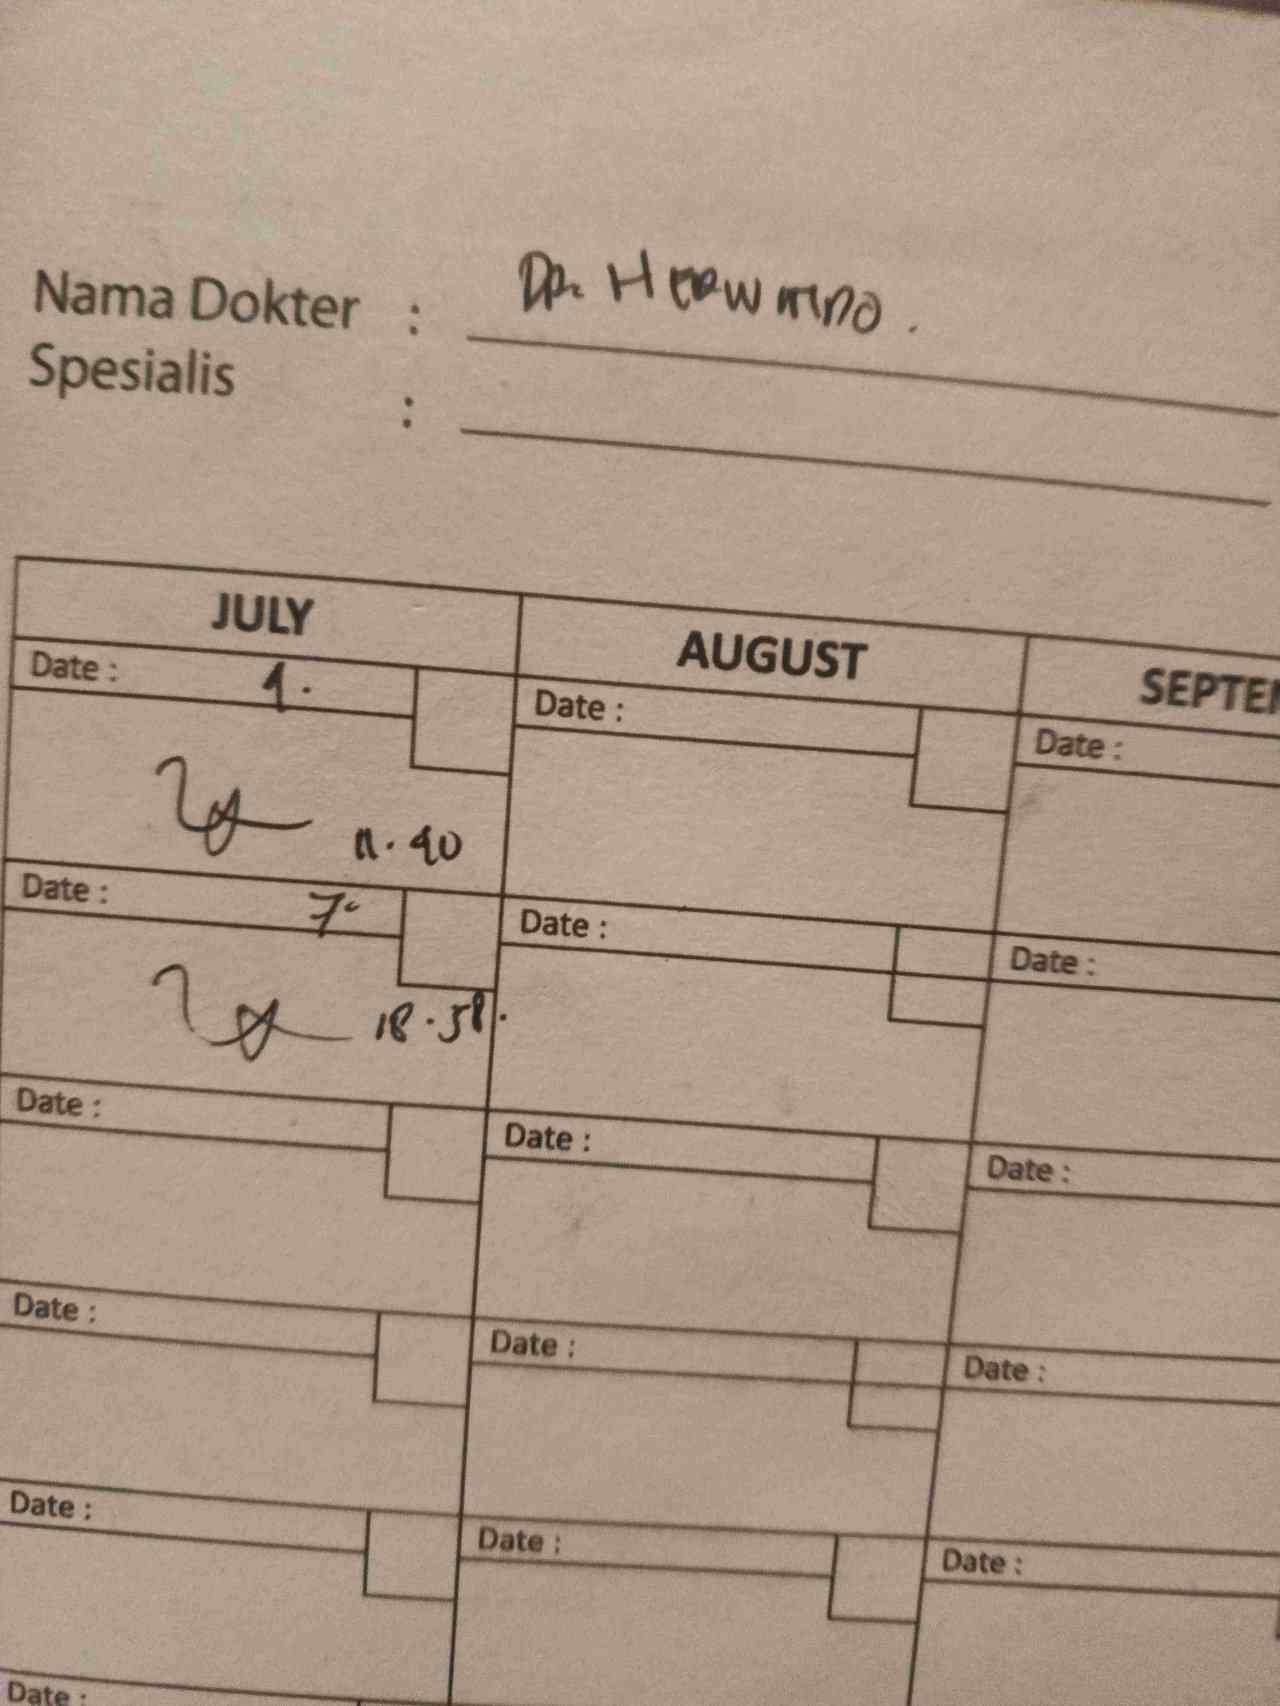 Nama Dokter : DR. HERWINDO.
Spesialis :
JULY AUGUST
Date : 1. Date : Date :
11.40
Date : 7. Date : Date :
18.58.
Date : Date : Date :
Date : Date : Date :
Date : Date : Date :
Date :